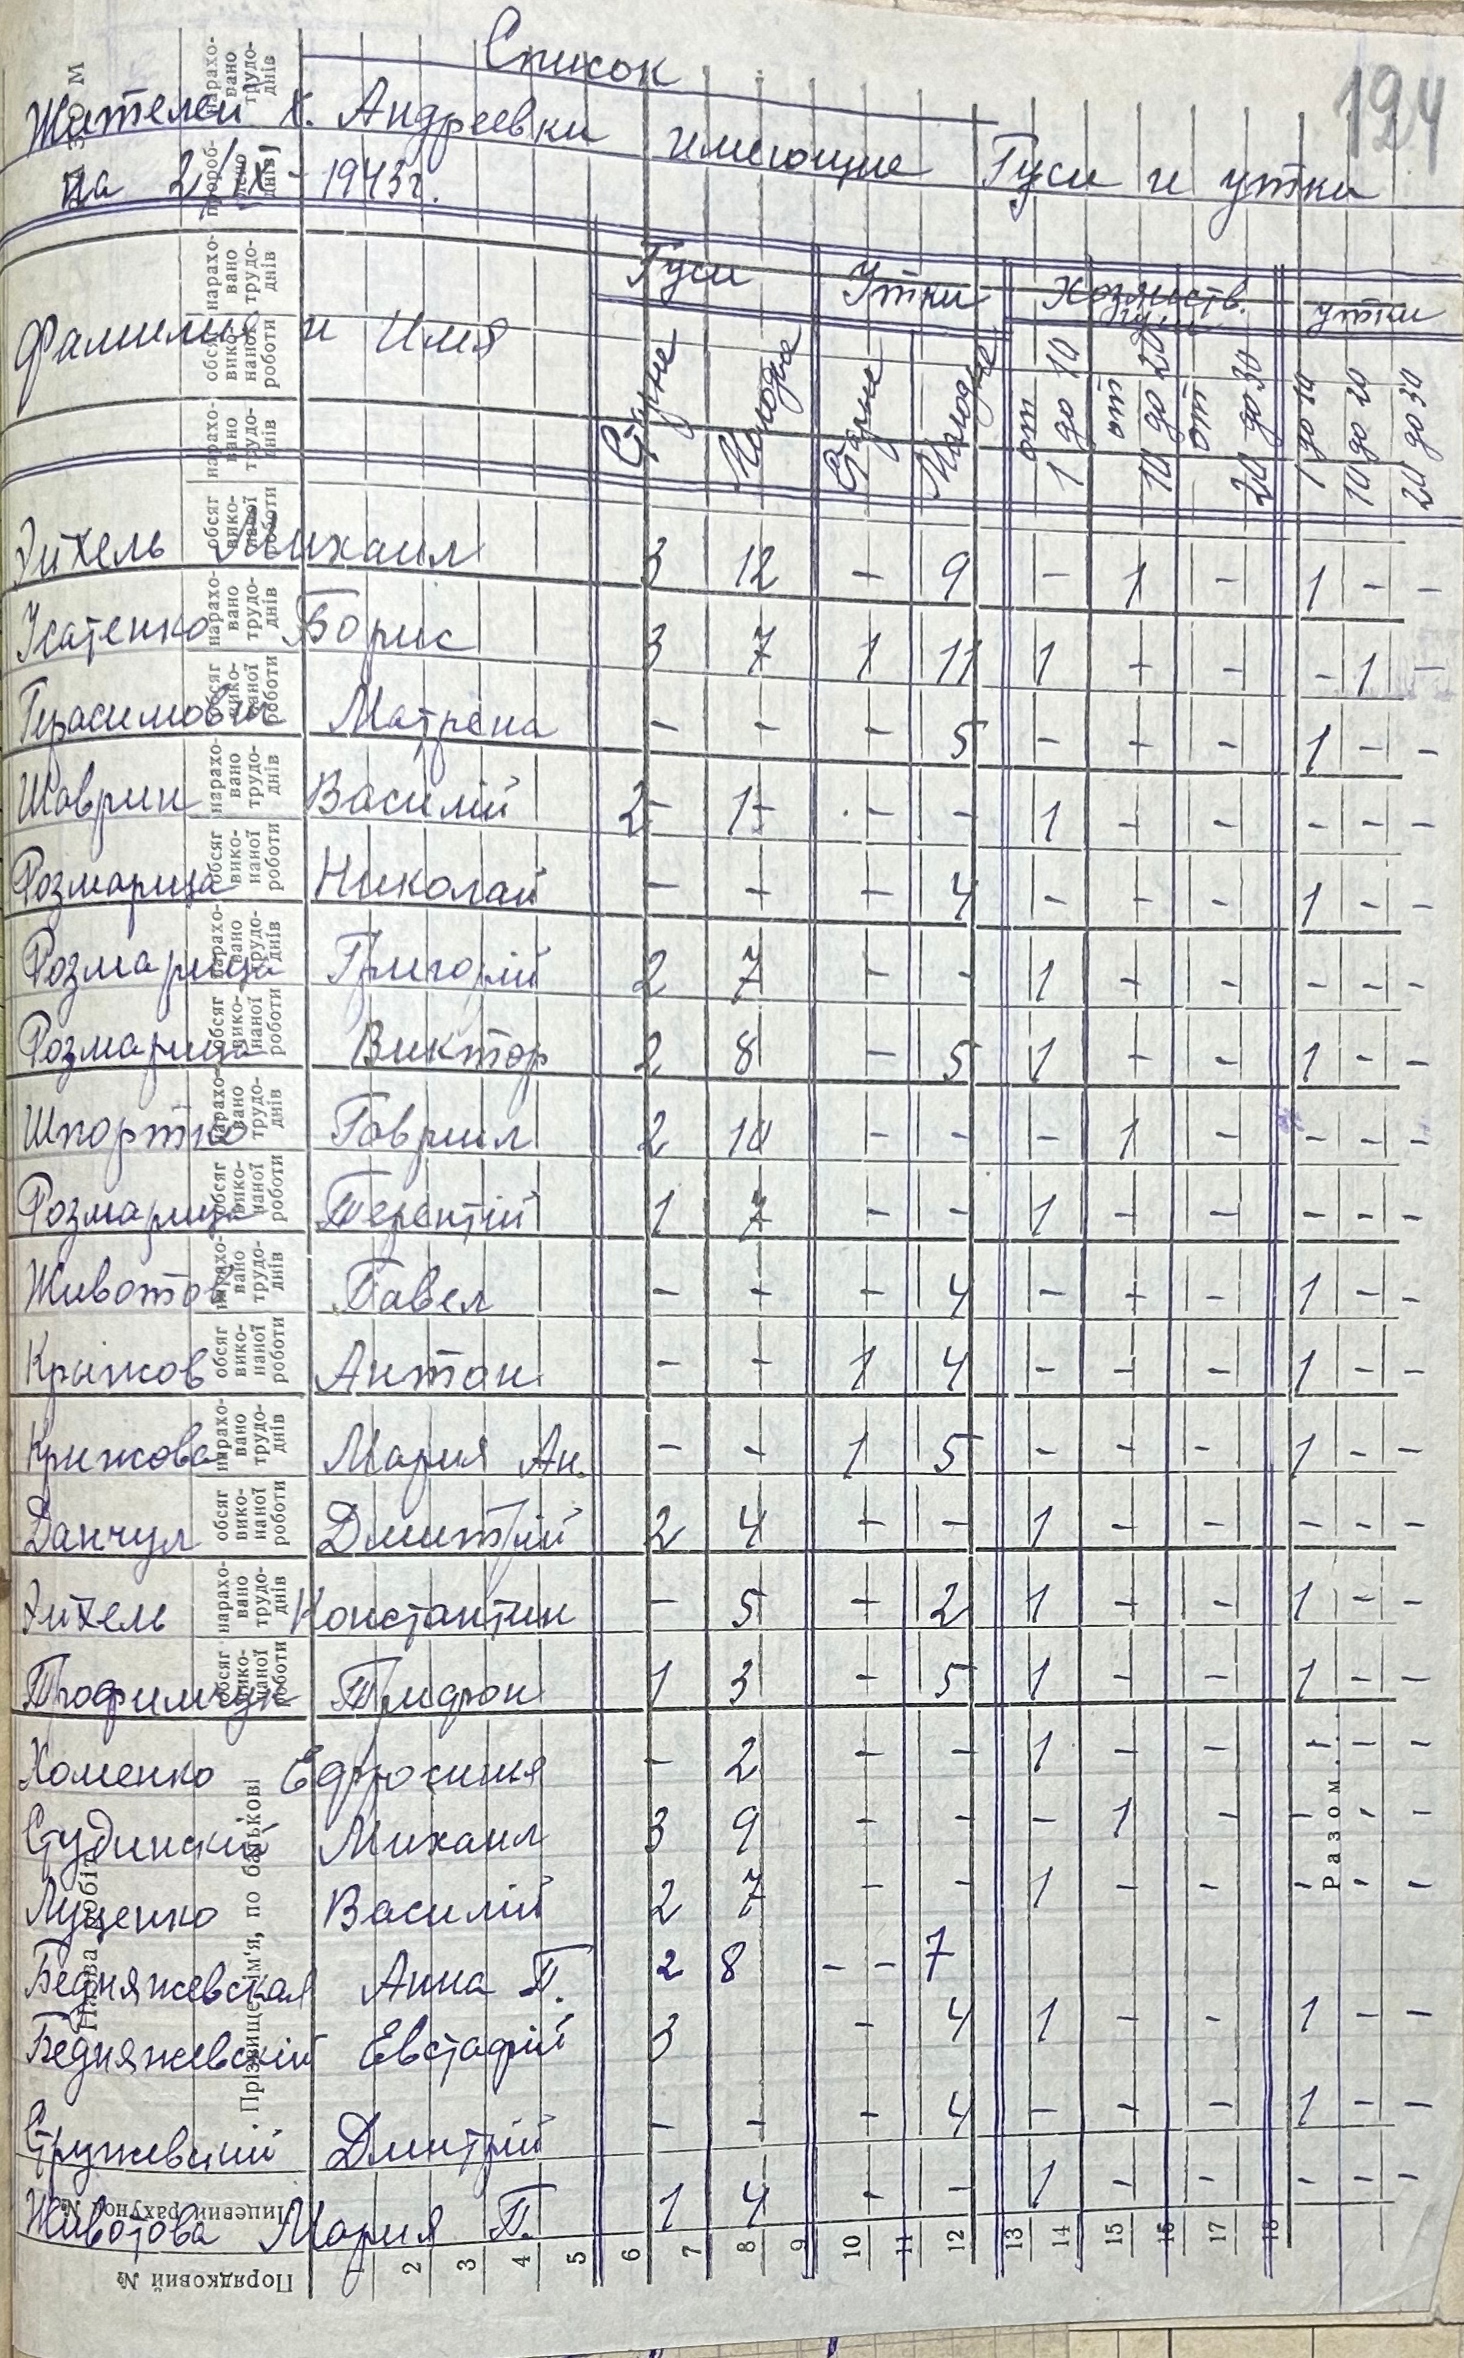 194
Список
Жителей х. Андреевки имеющие Гуси и утки
на 2/IX - 1943г.
Фамилия и Имя Гуси Утки Хозяйств. гуси утки
Старые Молодые Старые Молодые от 1 до 10 от 10 до 20 от 20 до 30 1 до 10 10 до 20 20 до 30
Эйхель Михаил 3 12 - 9 - 1 - 1 - -
Усатенко Борис 3 7 1 11 1 - - - 1 -
Герасимович Матрена - - - 5 - - - 1 - -
Шаврин Василій 2- 1- - - 1 - - - - -
Розмарица Николай - - - 4 - - - 1 - -
Розмарица Григорій 2 7 - - 1 - - - - -
Розмарица Виктор 2 8 - 5 1 - - 1 - -
Шпортко Гавриил 2 10 - - - 1 - - - -
Розмарица Терентій 1 7 - - 1 - - - - -
Животов Павел - - - 4 - - - 1 - -
Крыжов Антон - - 1 4 - - - 1 - -
Крыжова Мария Ан. - - 1 5 - - - 1 - -
Данчул Дмитрій 2 4 - - 1 - - - - -
Эйхель Константин - 5 - 2 1 - - 1 - -
Трофимчук Трифон 1 3 - 5 1 - - 1 - -
Хоменко Ефросиния - 2 - - 1 - - - - -
Студинский Михаил 3 9 - - - 1 - - - -
Луценко Василій 2 7 - - 1 - - - - -
Бедняжевская Анна П. 2 8 - - 7
Бедняжевскій Евстафій 3 - 4 1 - - 1 - -
Стружевский Дмитрій - - - 4 - - - 1 - -
Животова Мария П. 1 4 - - 1 - - - - -
Порядковий №
Лицевий рахунок №
Прізвище, ім'я, по батькові
Назва робіт
2 3 4 5 6 7 8 9 10 11 12 13 14 15 16 17 18
обсяг виконаної роботи
нараховано трудоднів
Разом